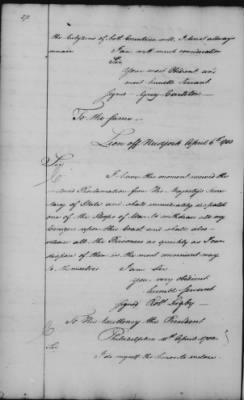 the Citizens of both Countries will, I trust always
remain I am with much consideration
Sir
Your most Obedient and
most humble Servant
Signed Guy Carleton
To the same
Lion off New York April 6th 1783
Sir
I have this moment received the
Proclamation from His Majesty's Secre
tary of State and shall immediately dispatch
one of the Sloops of War to withdraw all my
Cruizers upon this Coast and shall also
release all the Prisoners as quickly as I can
dispose of them in the most convenient way
to themselves I am Sir
your very obedient
humble Servant
Signed Robt Digby
To His Excellency the President
Philadelphia April 1783
Sir
I do myself the honor to enclose